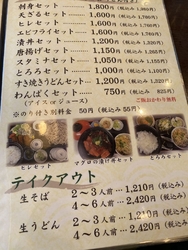 刺身セット 1,800円
天ざるセット 1,600円 (税込み 1,760円)
ヒレセット 1,600円 (税込み 1,760円)
エビフライセット 1,600円 (税込み 1,760円)
漬丼セット 1,200円 (税込み 1,320円)
唐揚げセット 1,150円 (税込み 1,265円)
スタミナセット 1,050円
とろろセット 1,000円 (税込み 1,100円)
すき焼きうどんセット 1,200円 (税込み 1,320円)
わんぱくセット 750円 (税込み 825円)
(アイス or ジュース)
ご飯おかわり無料
50円 (税込み 55円)
ヒレセット
マグロの漬け丼セット
とろろセット
テイクアウト
生そば 2〜3人前…1,210円(税込み)
4〜6人前…2,420円(税込み)
生うどん 2〜3人前…1,210円(税込み)
4〜6人前…2,420円(税込み)